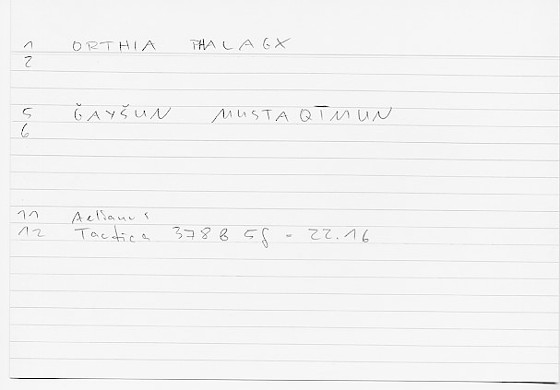 1 ORTHIA PHALAGX
2
5 ǦAYŠUN MUSTAQĪMUN
6
11 Aelianus
12 Tactica 378 B 5f - 22.16